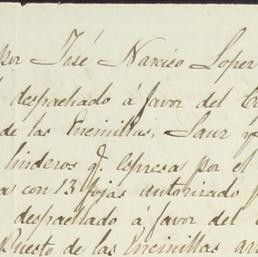 por José Narciso Loper
despachado á favor del
de las Encinillas, Sauz y
linderos q. espresa por el
con 13 fojas autorizado
despachado á favor del
Puesto de las Encinillas